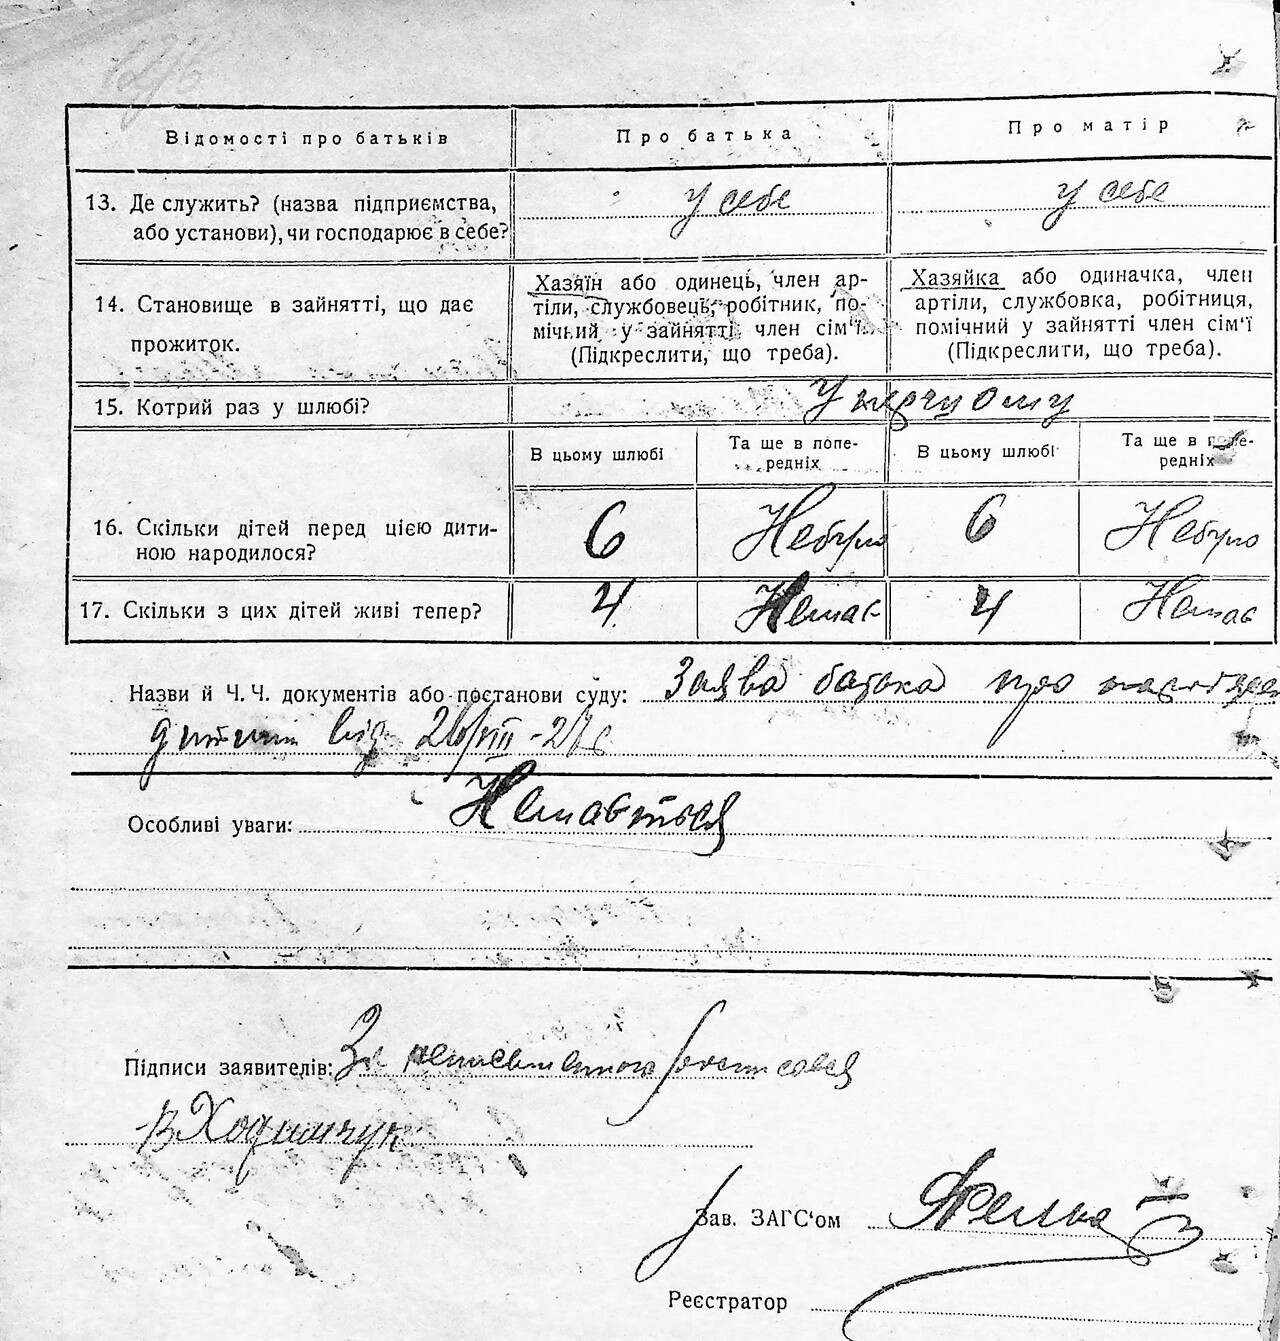 Відомості про батьків
Про батька
Про матір
13. Де служить? (назва підприємства, або установи), чи господарює в себе?
у себе
у себе
14. Становище в зайнятті, що дає прожиток.
Хазяїн або одинець, член ар-
тіли, службовець, робітник, по-
мічний у зайнятті член сім'ї.
(Підкреслити, що треба).
Хазяйка або одиначка, член
артіли, службовка, робітниця,
помічний у зайнятті член сім'ї
(Підкреслити, що треба).
15. Котрий раз у шлюбі?
У першому
В цьому шлюбі
Та ще в попе-
редніх
В цьому шлюбі
Та ще в попе-
редніх
16. Скільки дітей перед цією дити-
ною народилося?
6
Небуло
6
Небуло
17. Скільки з цих дітей живі тепер?
4
Немає
4
Немає
Назви й Ч.Ч. документів або постанови суду: Заява батька про
дитини від
Особливі уваги:
Підписи заявителів: За неписьменного росписався
В Ходимчук
Зав. ЗАГС'ом
Реєстратор